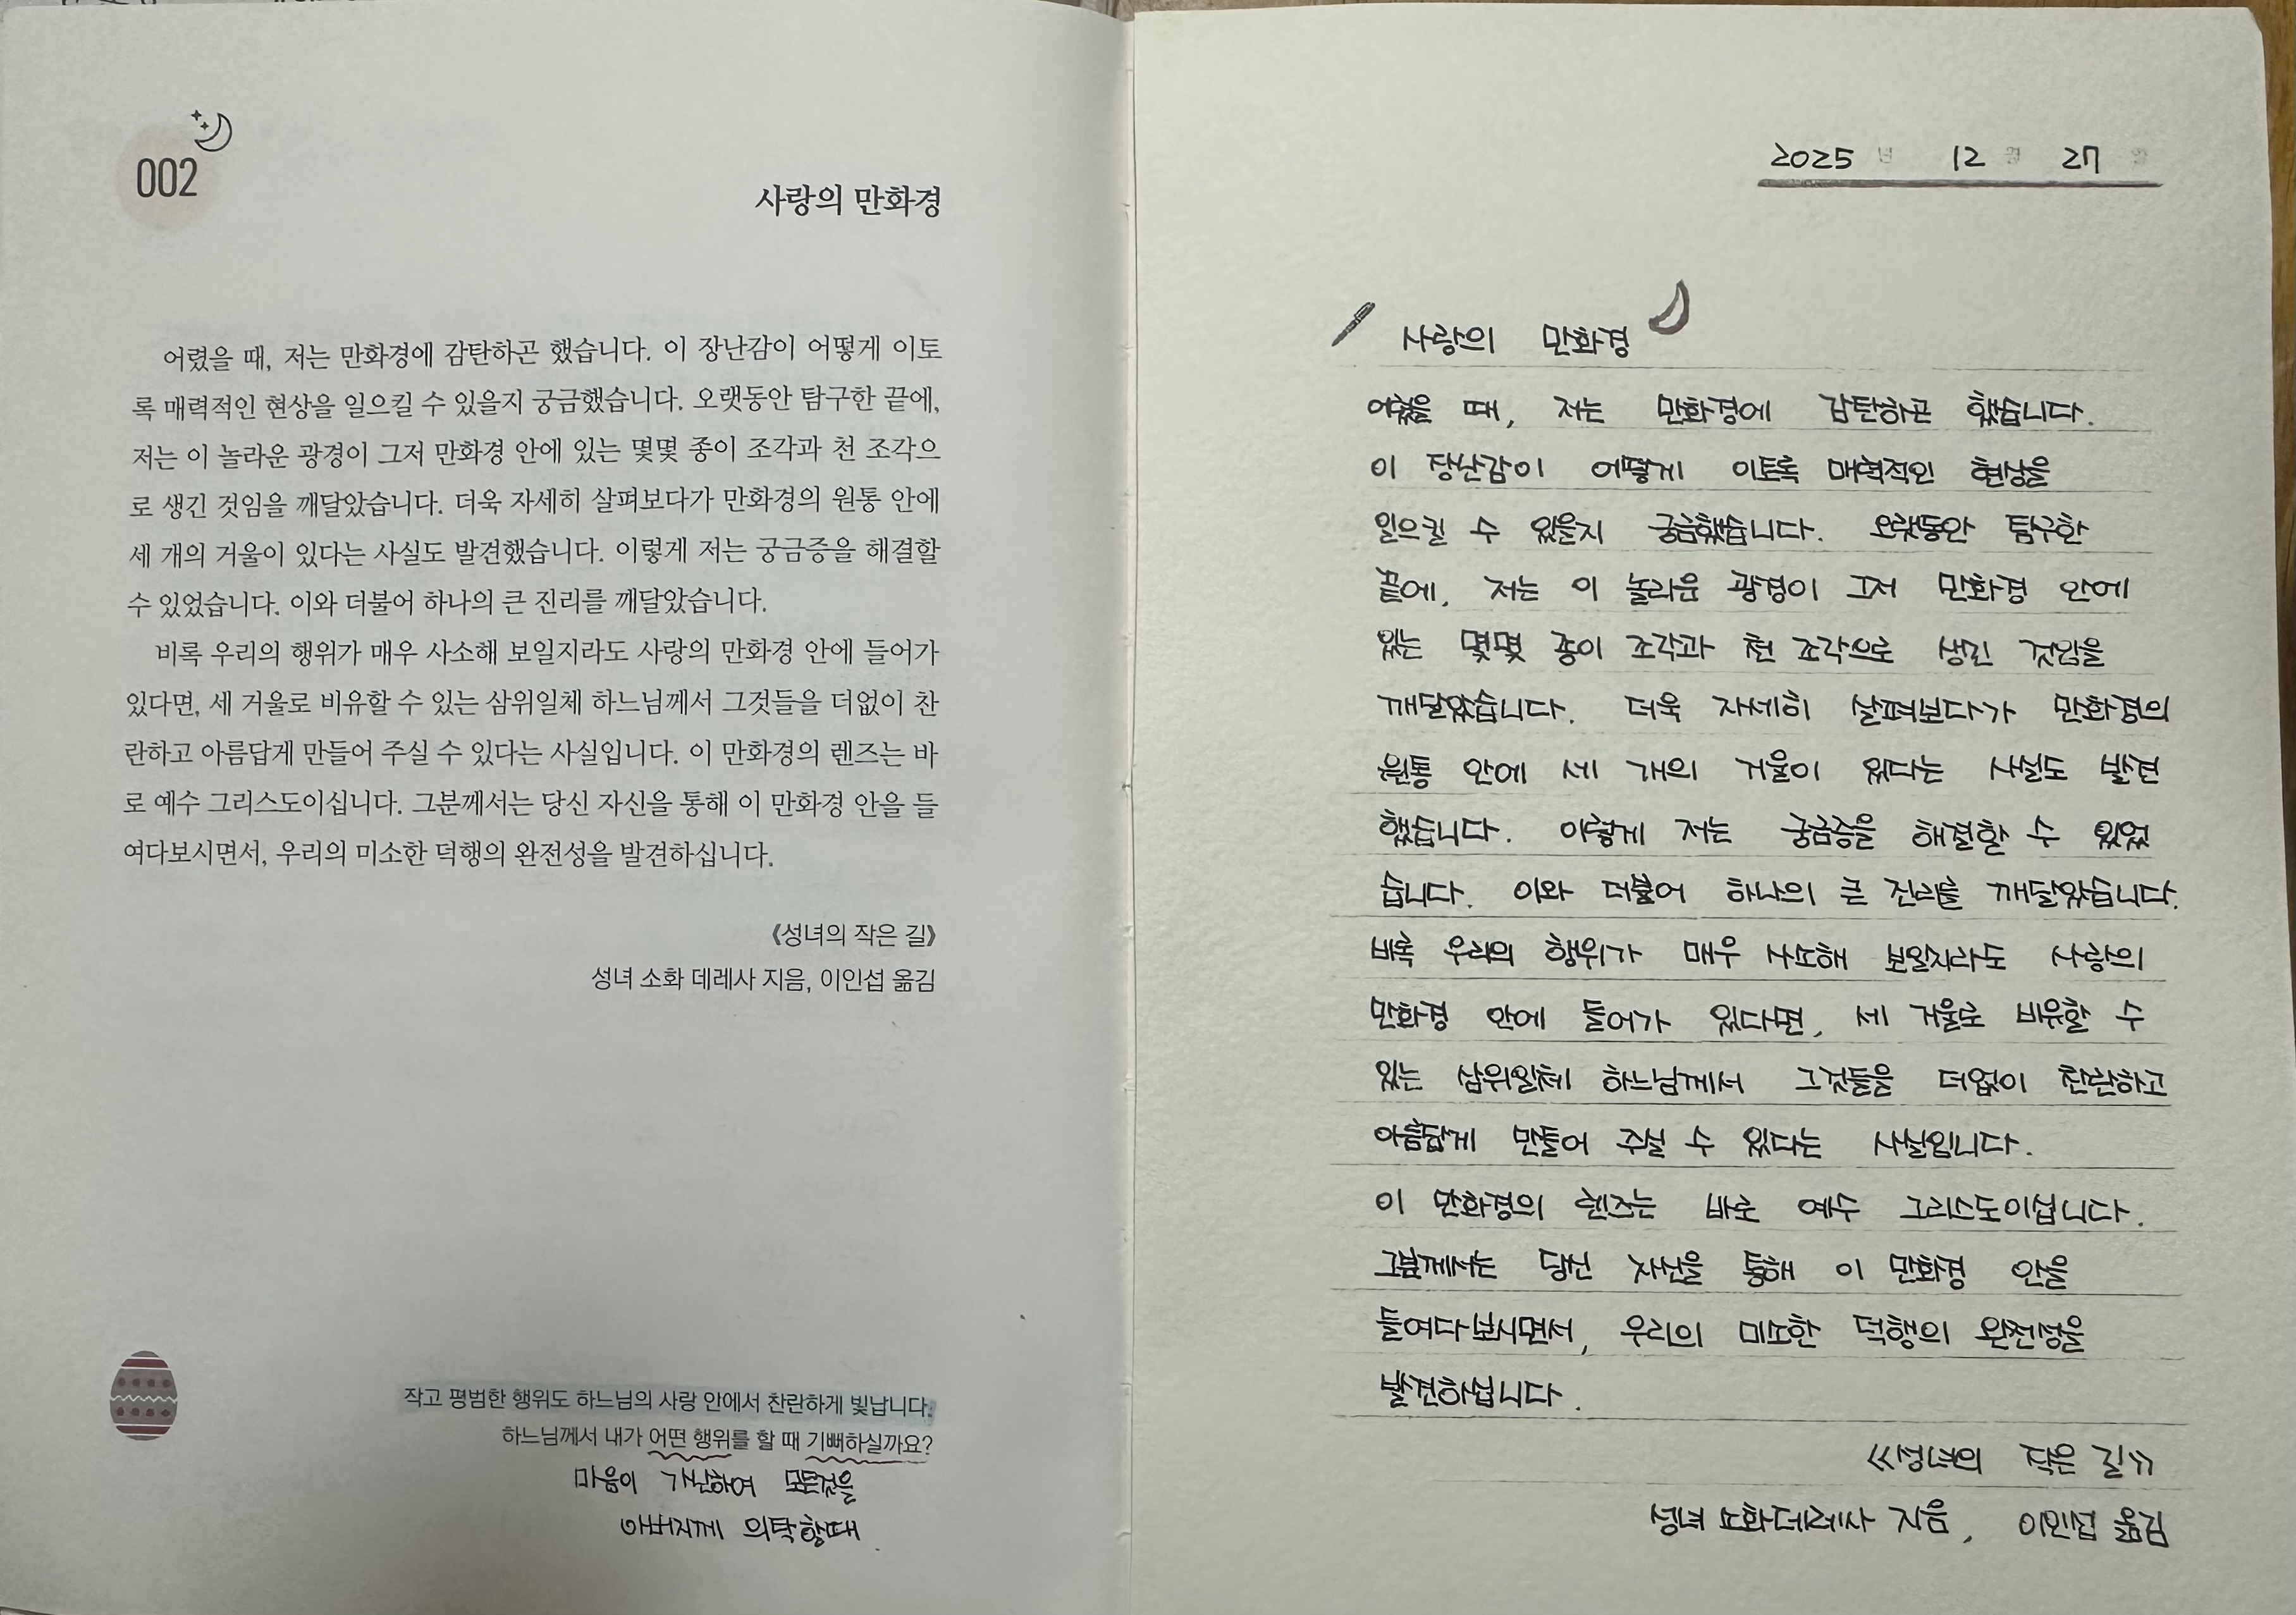 002
사랑의 만화경
어렸을 때, 저는 만화경에 감탄하곤 했습니다. 이 장난감이 어떻게 이토
록 매력적인 현상을 일으킬 수 있을지 궁금했습니다. 오랫동안 탐구한 끝에,
저는 이 놀라운 광경이 그저 만화경 안에 있는 몇몇 종이 조각과 천 조각으
로 생긴 것임을 깨달았습니다. 더욱 자세히 살펴보다가 만화경의 원통 안에
세 개의 거울이 있다는 사실도 발견했습니다. 이렇게 저는 궁금증을 해결할
수 있었습니다. 이와 더불어 하나의 큰 진리를 깨달았습니다.
비록 우리의 행위가 매우 사소해 보일지라도 사랑의 만화경 안에 들어가
있다면, 세 거울로 비유할 수 있는 삼위일체 하느님께서 그것들을 더없이 찬
란하고 아름답게 만들어 주실 수 있다는 사실입니다. 이 만화경의 렌즈는 바
로 예수 그리스도이십니다. 그분께서는 당신 자신을 통해 이 만화경 안을 들
여다보시면서, 우리의 미소한 덕행의 완전성을 발견하십니다.
《성녀의 작은 길》
성녀 소화 데레사 지음, 이인섭 옮김
작고 평범한 행위도 하느님의 사랑 안에서 찬란하게 빛납니다.
하느님께서 내가 어떤 행위를 할 때 기뻐하실까요?
마음이 가난하여 모든것을
아버지께 의탁할때.
2025 년 12 월 27 일
사랑의 만화경
어렸을 때, 저는 만화경에 감탄하곤 했습니다.
이 장난감이 어떻게 이토록 매력적인 현상을
일으킬 수 있을지 궁금했습니다. 오랫동안 탐구한
끝에, 저는 이 놀라운 광경이 그저 만화경 안에
있는 몇몇 종이 조각과 천 조각으로 생긴 것임을
깨달았습니다. 더욱 자세히 살펴보다가 만화경의
원통 안에 세 개의 거울이 있다는 사실도 발견
했습니다. 이렇게 저는 궁금증을 해결할 수 있었
습니다. 이와 더불어 하나의 큰 진리를 깨달았습니다.
비록 우리의 행위가 매우 사소해 보일지라도 사랑의
만화경 안에 들어가 있다면, 세 거울로 비유할 수
있는 삼위일체 하느님께서 그것들을 더없이 찬란하고
아름답게 만들어 주실 수 있다는 사실입니다.
이 만화경의 렌즈는 바로 예수 그리스도이십니다.
그분께서는 당신 자신을 통해 이 만화경 안을
들여다보시면서, 우리의 미소한 덕행의 완전성을
발견하십니다.
《성녀의 작은 길》
성녀 소화데레사 지음, 이인섭 옮김